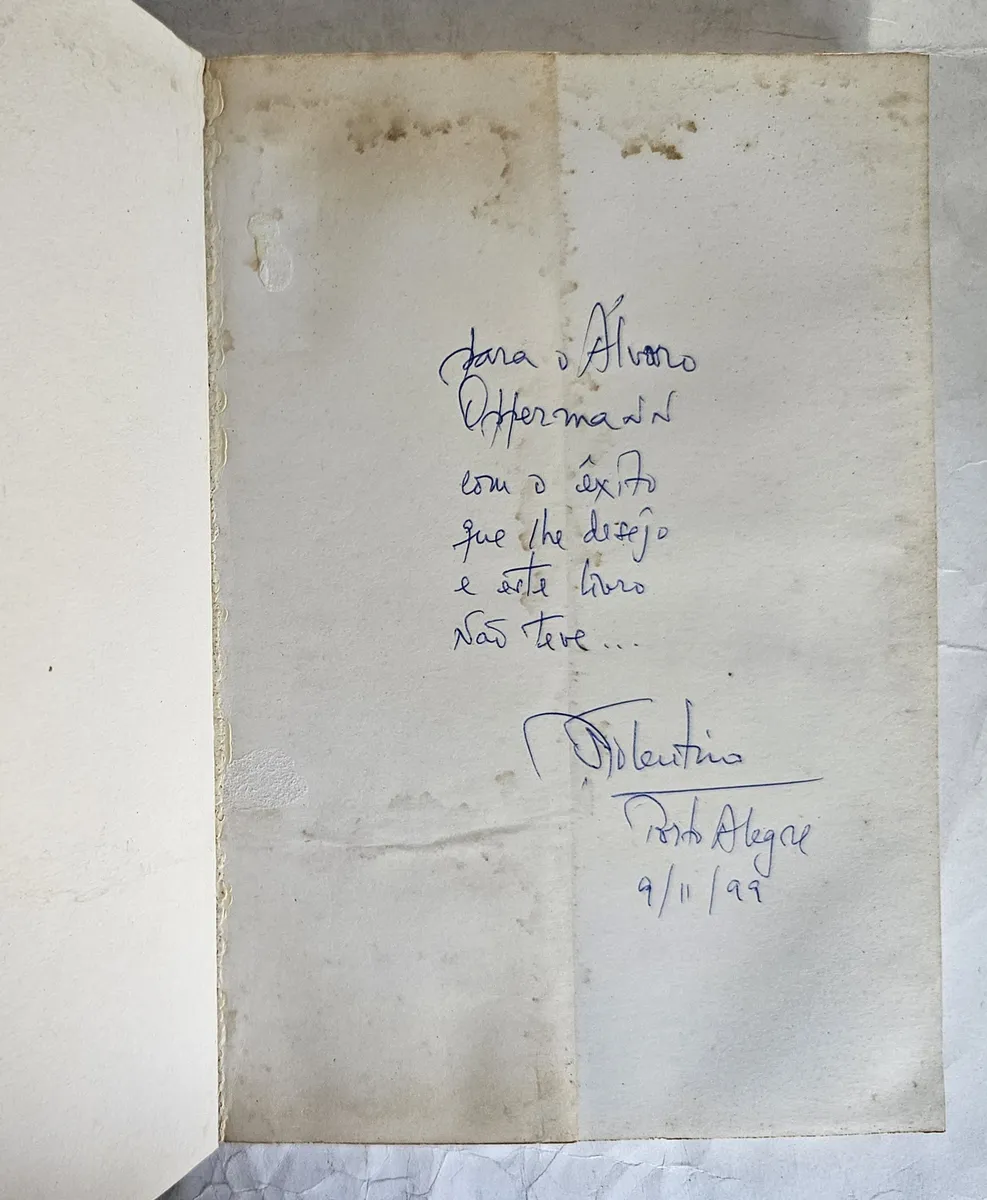 para o Álvaro
Oppermann
com o êxito
que lhe desejo
e êste livro
não teve...
Tolentino
Porto Alegre
9/11/99